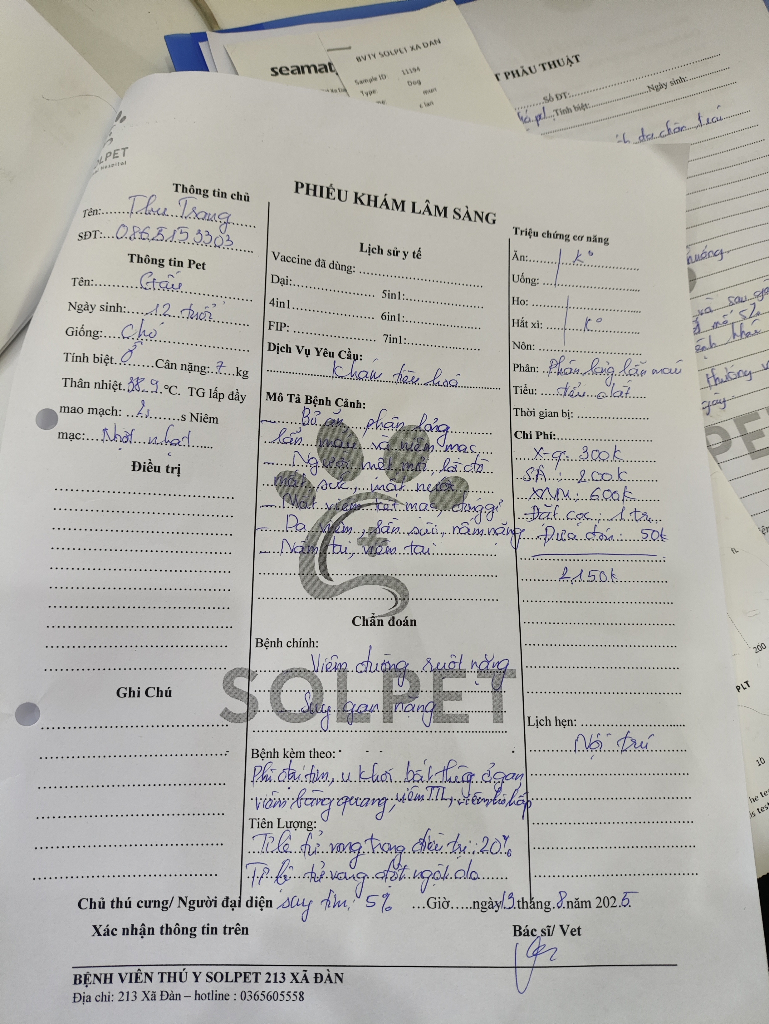 seamat
BVTY SOLPET XA DAN
Sample ID 11194
Type Dog
T PHẪU THUẬT
Số ĐT:
Ngày sinh:
Tính biệt:
SOLPET
Hospital
PHIẾU KHÁM LÂM SÀNG
Thông tin chủ
Tên: Thu Trang
SĐT: 0868153303
Thông tin Pet
Tên: Gấu
Ngày sinh: 12 tuổi
Giống: Chó
Tính biệt ♂ Cân nặng: 7 kg
Thân nhiệt 38.9 °C. TG lấp đầy
mao mạch: 2s s Niêm
mạc: Nhợt nhạt
Điều trị
Ghi Chú
Lịch sử y tế
Vaccine đã dùng:
Dại: 5in1:
4in1 6in1:
FIP: 7in1:
Dịch Vụ Yêu Cầu:
Khám tiêu hoá
Mô Tả Bệnh Cảnh:
- Bỏ ăn, phân lỏng
lẫn máu và niêm mạc
- Người mệt mỏi, lờ đờ
mất sức, mất nước
- Mắt viêm kết mạc, đóng gỉ
- Da viêm, sần sùi, nấm nặng
- Nấm tai, viêm tai
SOLPET
Chẩn đoán
Bệnh chính:
Viêm đường ruột nặng
Suy gan nặng
Bệnh kèm theo:
Phì đại tim, u khối bất thường ở gan
viêm bàng quang, viêm TTL, viêm hô hấp
Tiên Lượng:
Tỉ lệ tử vong trong điều trị: 20%
Tỉ lệ tử vong đột ngột do
suy tim: 5%
Triệu chứng cơ năng
Ăn: K°
Uống:
Ho:
Hắt xì: K°
Nôn:
Phân: Phân lỏng lẫn máu
Tiểu: tiểu dắt
Thời gian bị:
Chi Phí:
X-q: 300k
SA: 200k
XNM: 600k
Đặt cọc: 1 tr
Đưa đón: 50k
2,150k
Lịch hẹn:
Nội trú
Chủ thú cưng/ Người đại diện
Giờ.....ngày 19 tháng 8 năm 2025
Xác nhận thông tin trên
Bác sĩ/ Vet
BỆNH VIÊN THÚ Y SOLPET 213 XÃ ĐÀN
Địa chỉ: 213 Xã Đàn – hotline : 0365605558
PLT
200